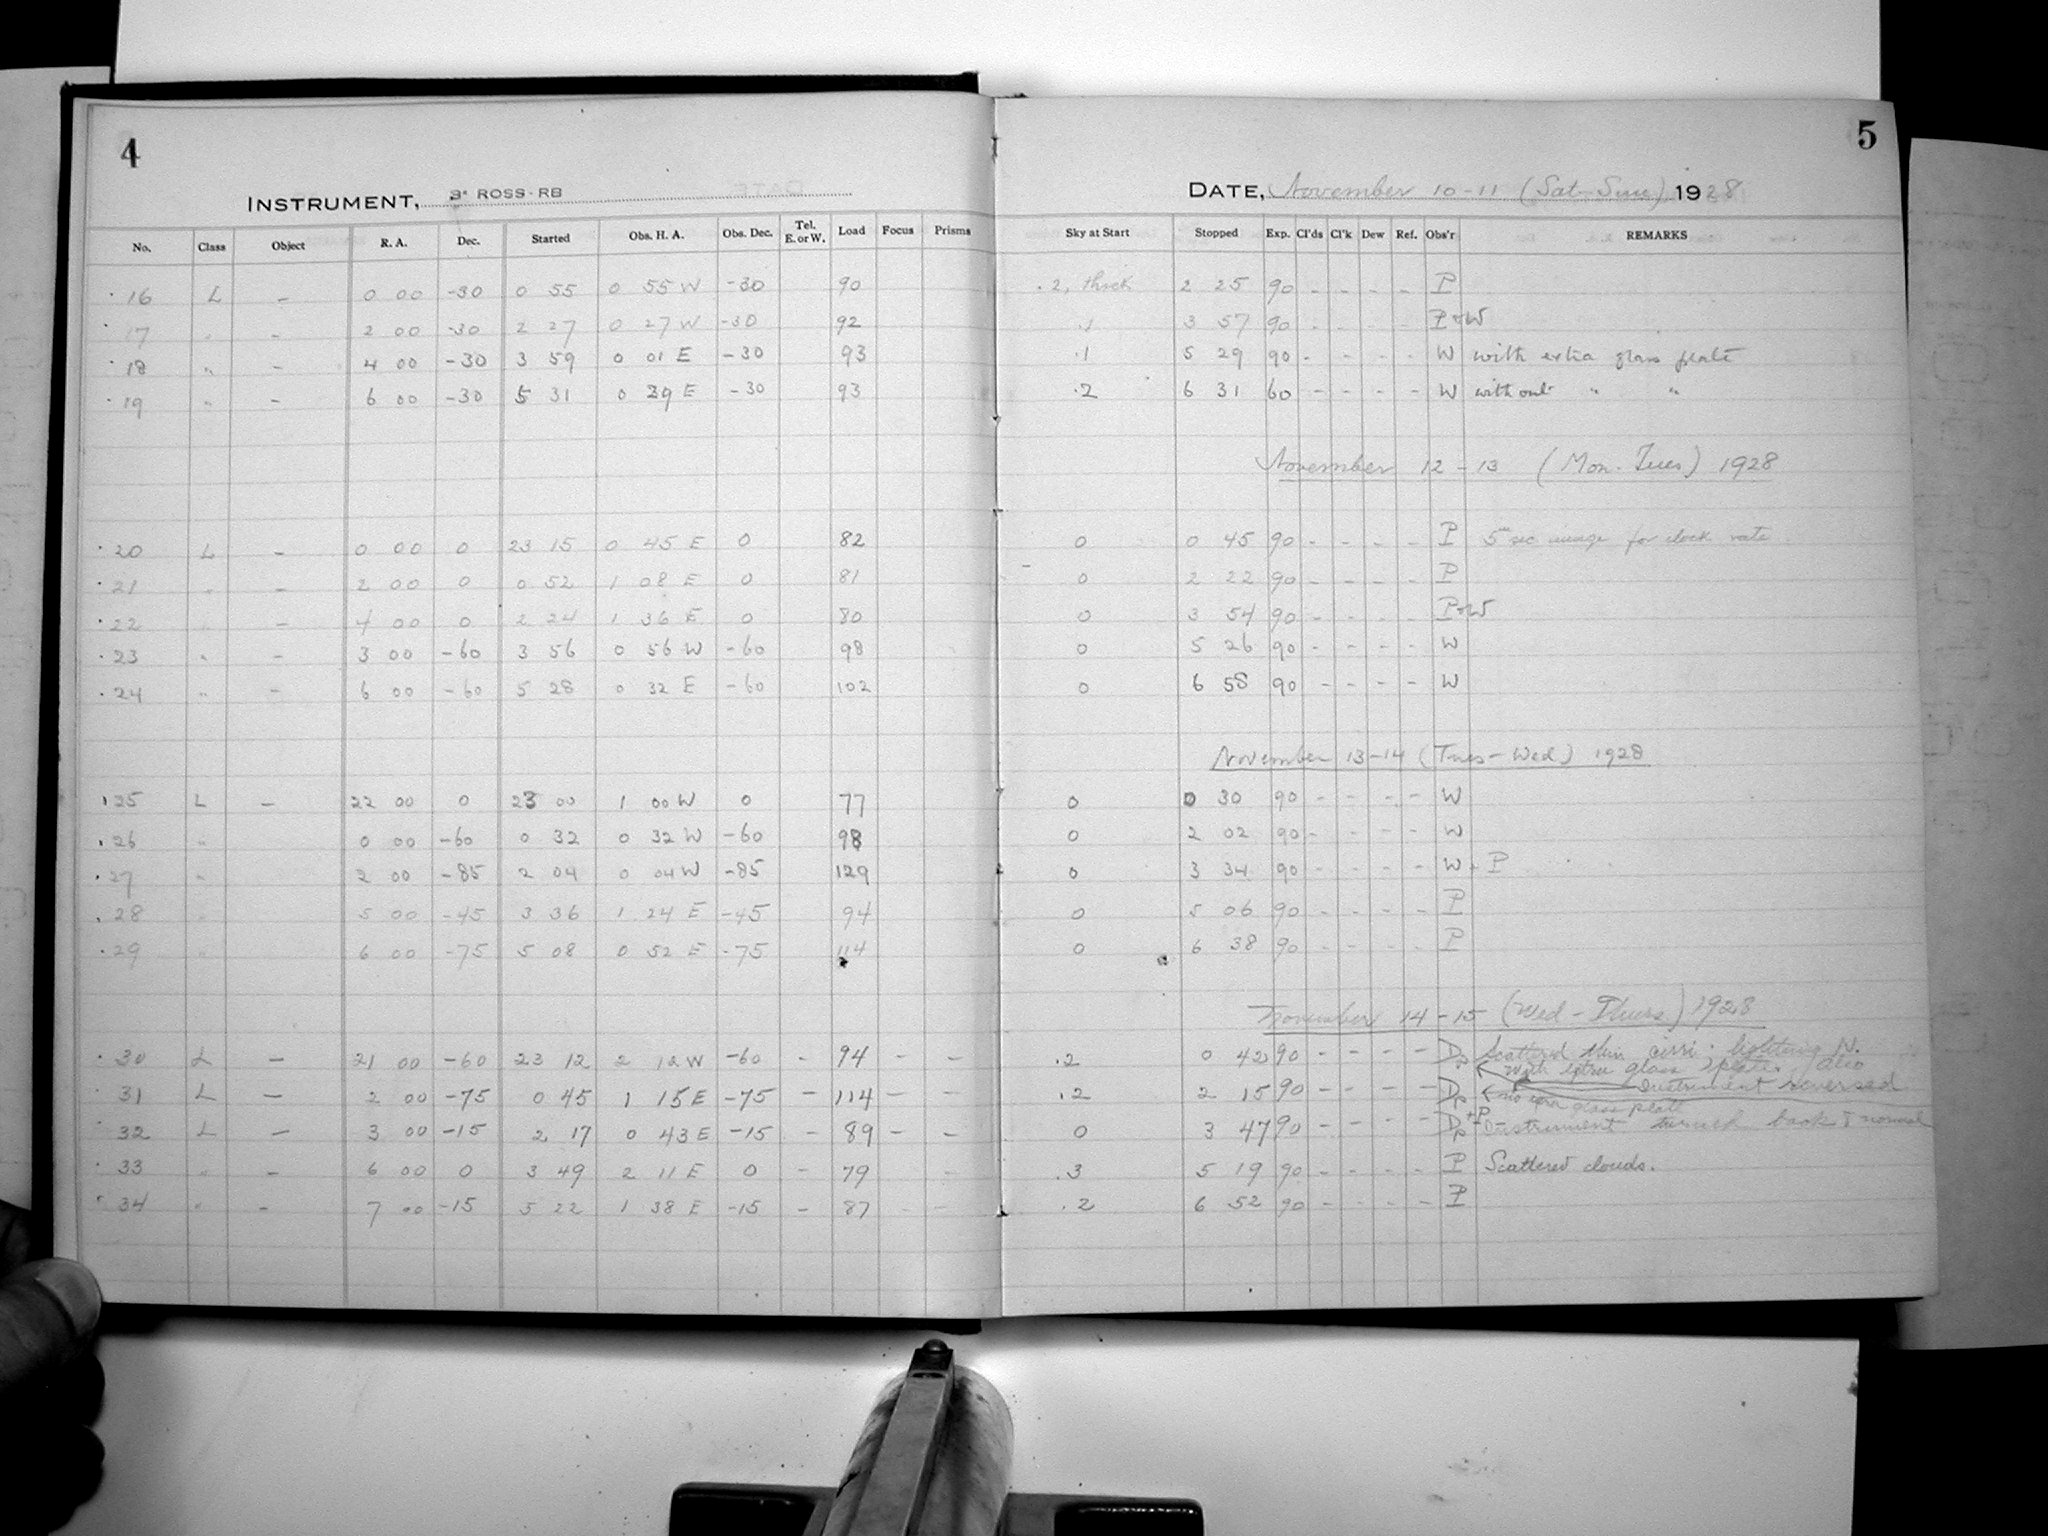 4
5
INSTRUMENT, 3" ROSS-RB
DATE, November 10-11 (Sat-Sun) 1928
No. Class Object R. A. Dec. Started Obs. H. A. Obs. Dec. Tel. E. or W. Load Focus Prisms Sky at Start Stopped Exp. Cl'ds Cl'k Dew Ref. Obs'r REMARKS
16 L - 0 00 -30 0 55 0 55 W -30 90 .2, thick 2 25 90 - - - - P
17 " - 2 00 -30 2 27 0 27 W -30 92 .1 3 57 90 - - - - P+W
18 " - 4 00 -30 3 59 0 01 E -30 93 .1 5 29 90 - - - - W with extra glass plate
19 " - 6 00 -30 5 31 0 29 E -30 93 .2 6 31 60 - - - - W without " "
November 12-13 (Mon. Tues) 1928
20 L - 0 00 0 23 15 0 45 E 0 82 0 0 45 90 - - - - P 5 sec image for clock rate
21 " - 2 00 0 0 52 1 08 E 0 81 0 2 22 90 - - - - P
22 " - 4 00 0 2 24 1 36 E 0 80 0 3 54 90 - - - - P+W
23 " - 3 00 -60 3 56 0 56 W -60 98 0 5 26 90 - - - - W
24 " - 6 00 -60 5 28 0 32 E -60 102 0 6 58 90 - - - - W
November 13-14 (Tues-Wed) 1928
25 L - 22 00 0 23 00 1 00 W 0 77 0 0 30 90 - - - - W
26 " 0 00 -60 0 32 0 32 W -60 98 0 2 02 90 - - - - W
27 " 2 00 -85 2 04 0 04 W -85 129 0 3 34 90 - - - - W+P
28 " 5 00 -45 3 36 1 24 E -45 94 0 5 06 90 - - - - P
29 " 6 00 -75 5 08 0 52 E -75 114 0 6 38 90 - - - - P
November 14-15 (Wed-Thurs) 1928
30 L - 21 00 -60 23 12 2 12 W -60 - 94 - - .2 0 42 90 - - - - Dp Scattered thin cirri. lightning N.
with extra glass plate. also
31 L - 2 00 -75 0 45 1 15 E -75 - 114 - - .2 2 15 90 - - - - Dp Instrument reversed
no extra glass plate
32 L - 3 00 -15 2 17 0 43 E -15 - 89 - - 0 3 47 90 - - - - Dp+P Instrument turned back to normal
33 " - 6 00 0 3 49 2 11 E 0 - 79 - .3 5 19 90 - - - - P Scattered clouds.
34 " - 7 00 -15 5 22 1 38 E -15 - 87 - - .2 6 52 90 - - - - P